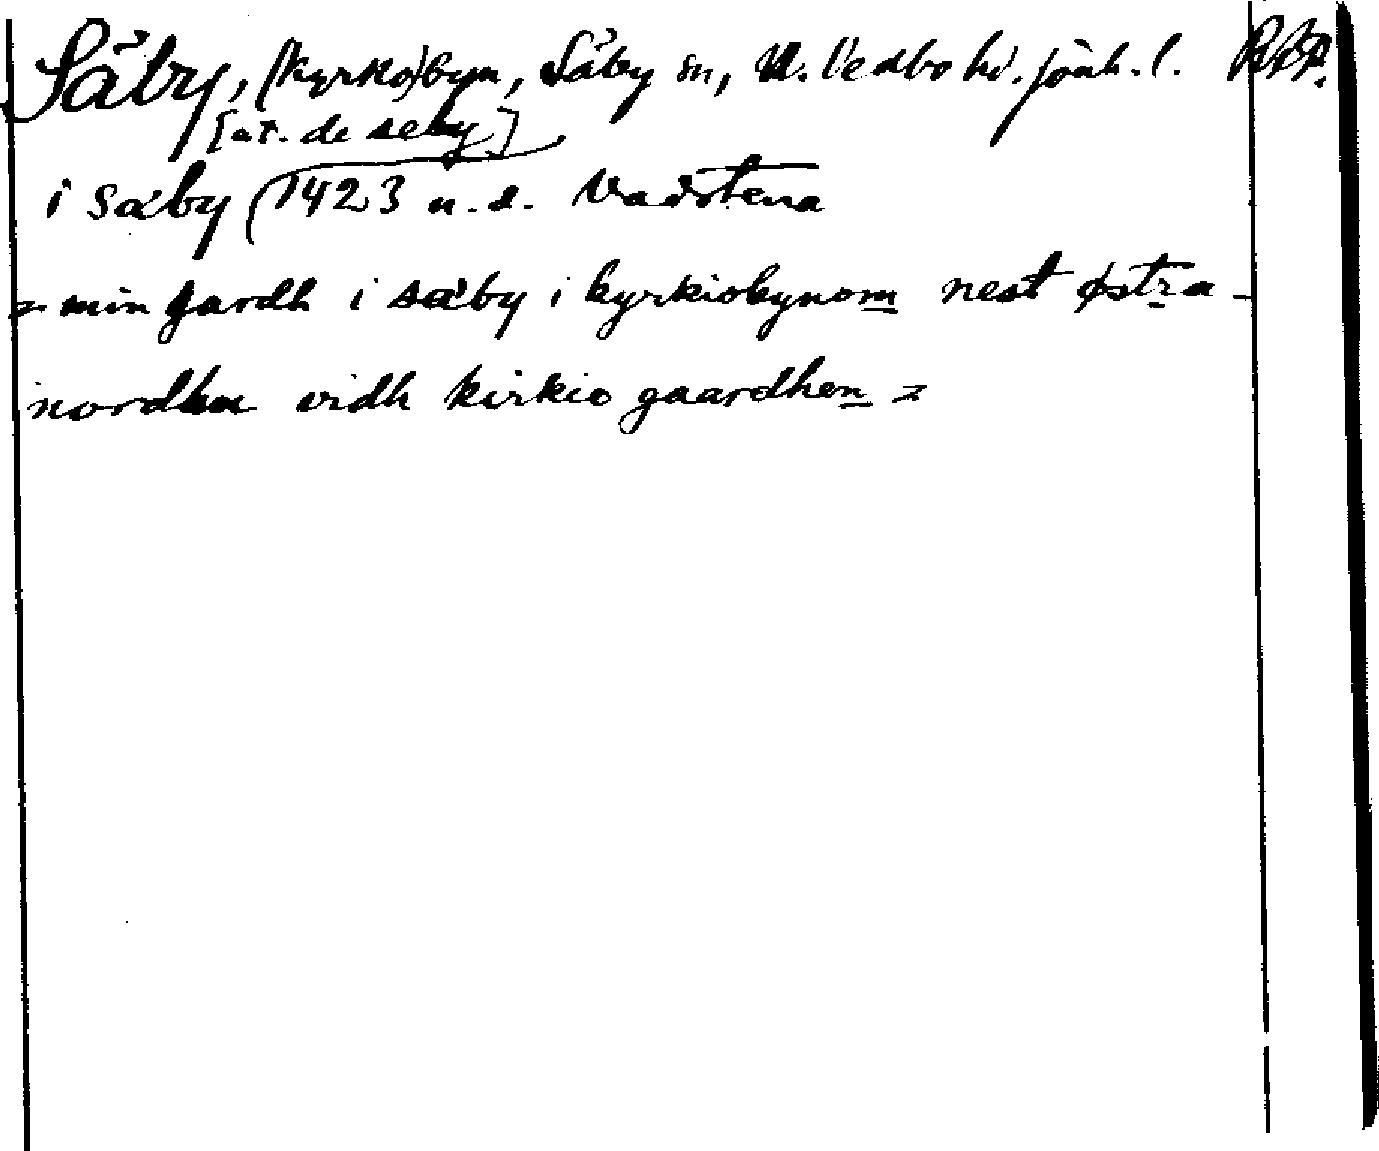 Säby, (kyrko)byn, Säby sn, N. Vedbo hd. Jönk. l. RAP.
[at. de seby]
i säby (1423 u. d. Vadstena
= min gardh i säby i kyrkiobynom nest østra -
nordhen vidh kirkio gaardhen =